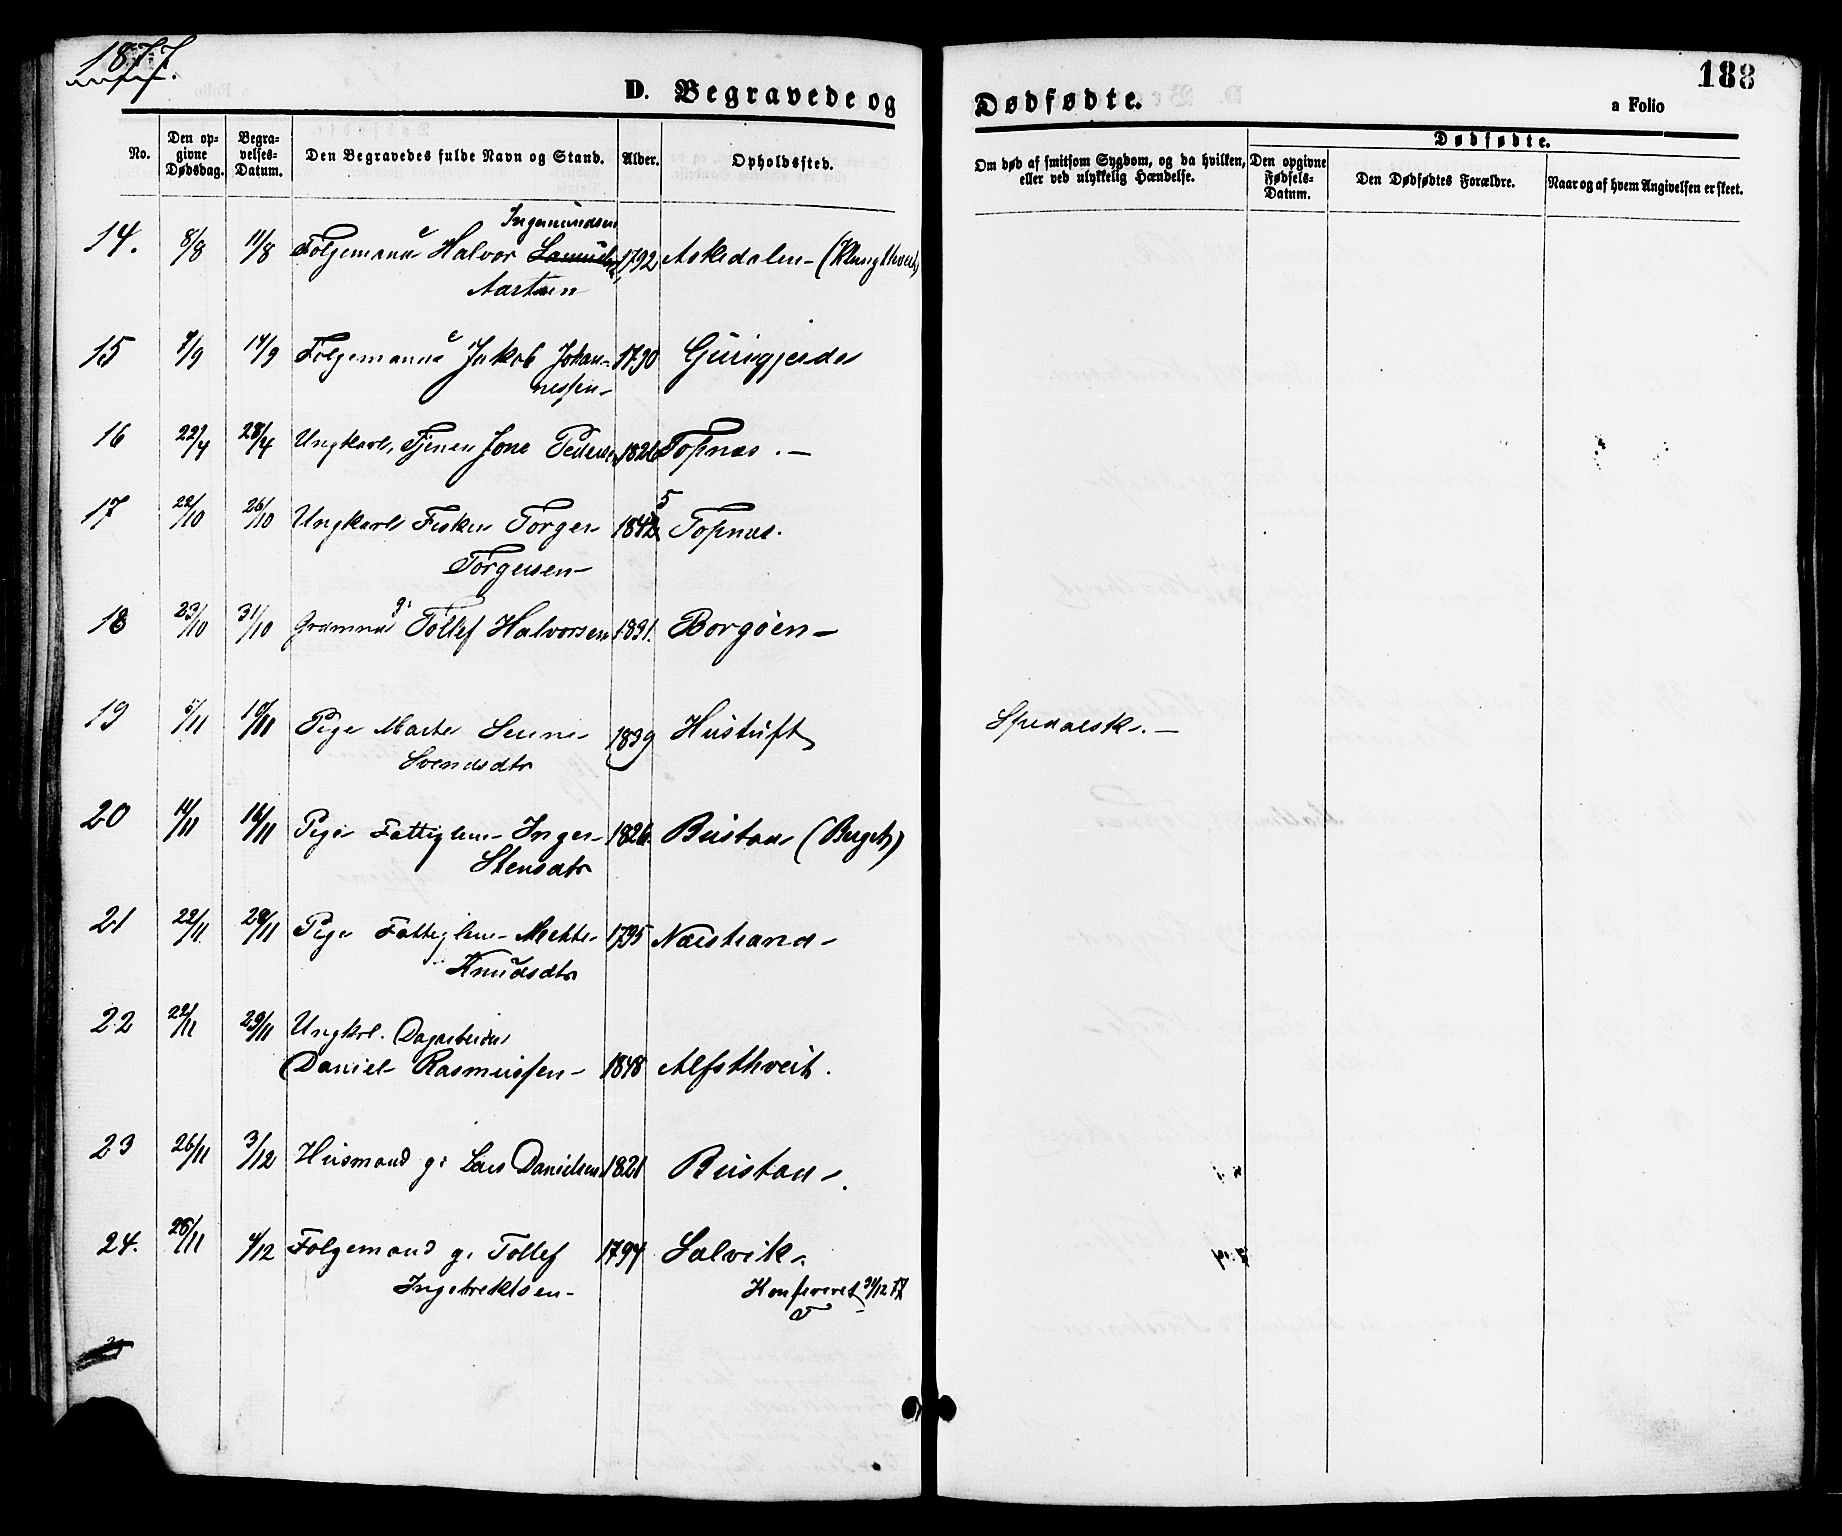 1877.
D. Begravede og
No.
Den op-
givne
Dødsdag.
Begra-
velses-
Datum.
Den Begravedes fulde Navn og Stand.
Alder.
Opholdssted.
Ingemundsen
14. 8/8 11/8 Følgemand Halvor 1792 Askedalen - (Klungthveit)
15 9/9 14/9 Følgemand Jakob Johan- 1790 Gunigjerde
nessen -
16 22/4 28/4 Ungkarl, Tjener Jone Pedersen 1826 Topnæs . -
17 22/10 26/10 Ungkarl Fisker Torger 1845 Topnæs.
Torgersen -
18 23/10 31/10 g. Tollef Halvorsen 1831. Borgøen -
19 5/11 10/11 Pige Marte Serine 1839 Hustuft
Svendsdtr
20 11/11 16/11 Pige Fattiglem - Inger 1826. Bustad (Berget)
Stensdtr
21 22/11 28/11 Pige Fattiglem - Mette 1795 Næstrand -
Knudsdtr
22 22/11 29/11 Ungkrl. Dagarbeider
Daniel Rasmussen - 1848 Alfsthveit.
23 26/11 3/12 Husmand g. Lars Danielsen 1821 Bustad .
24. 28/11 4/12 Følgemand g. Tollef 1794 Salvik.
Ingebrektsen - Konfereret 31/12 77
Dødfødte.
188
a Folio
Om død af smitsom Sygdom, og da hvilken,
eller ved ulykkelig Hændelse.
Dødfødte.
Den opgivne
Fødsels-
Datum.
Den Dødfødtes Forældre.
Naar og af hvem Angivelsen er skeet.
Spedalsk. -